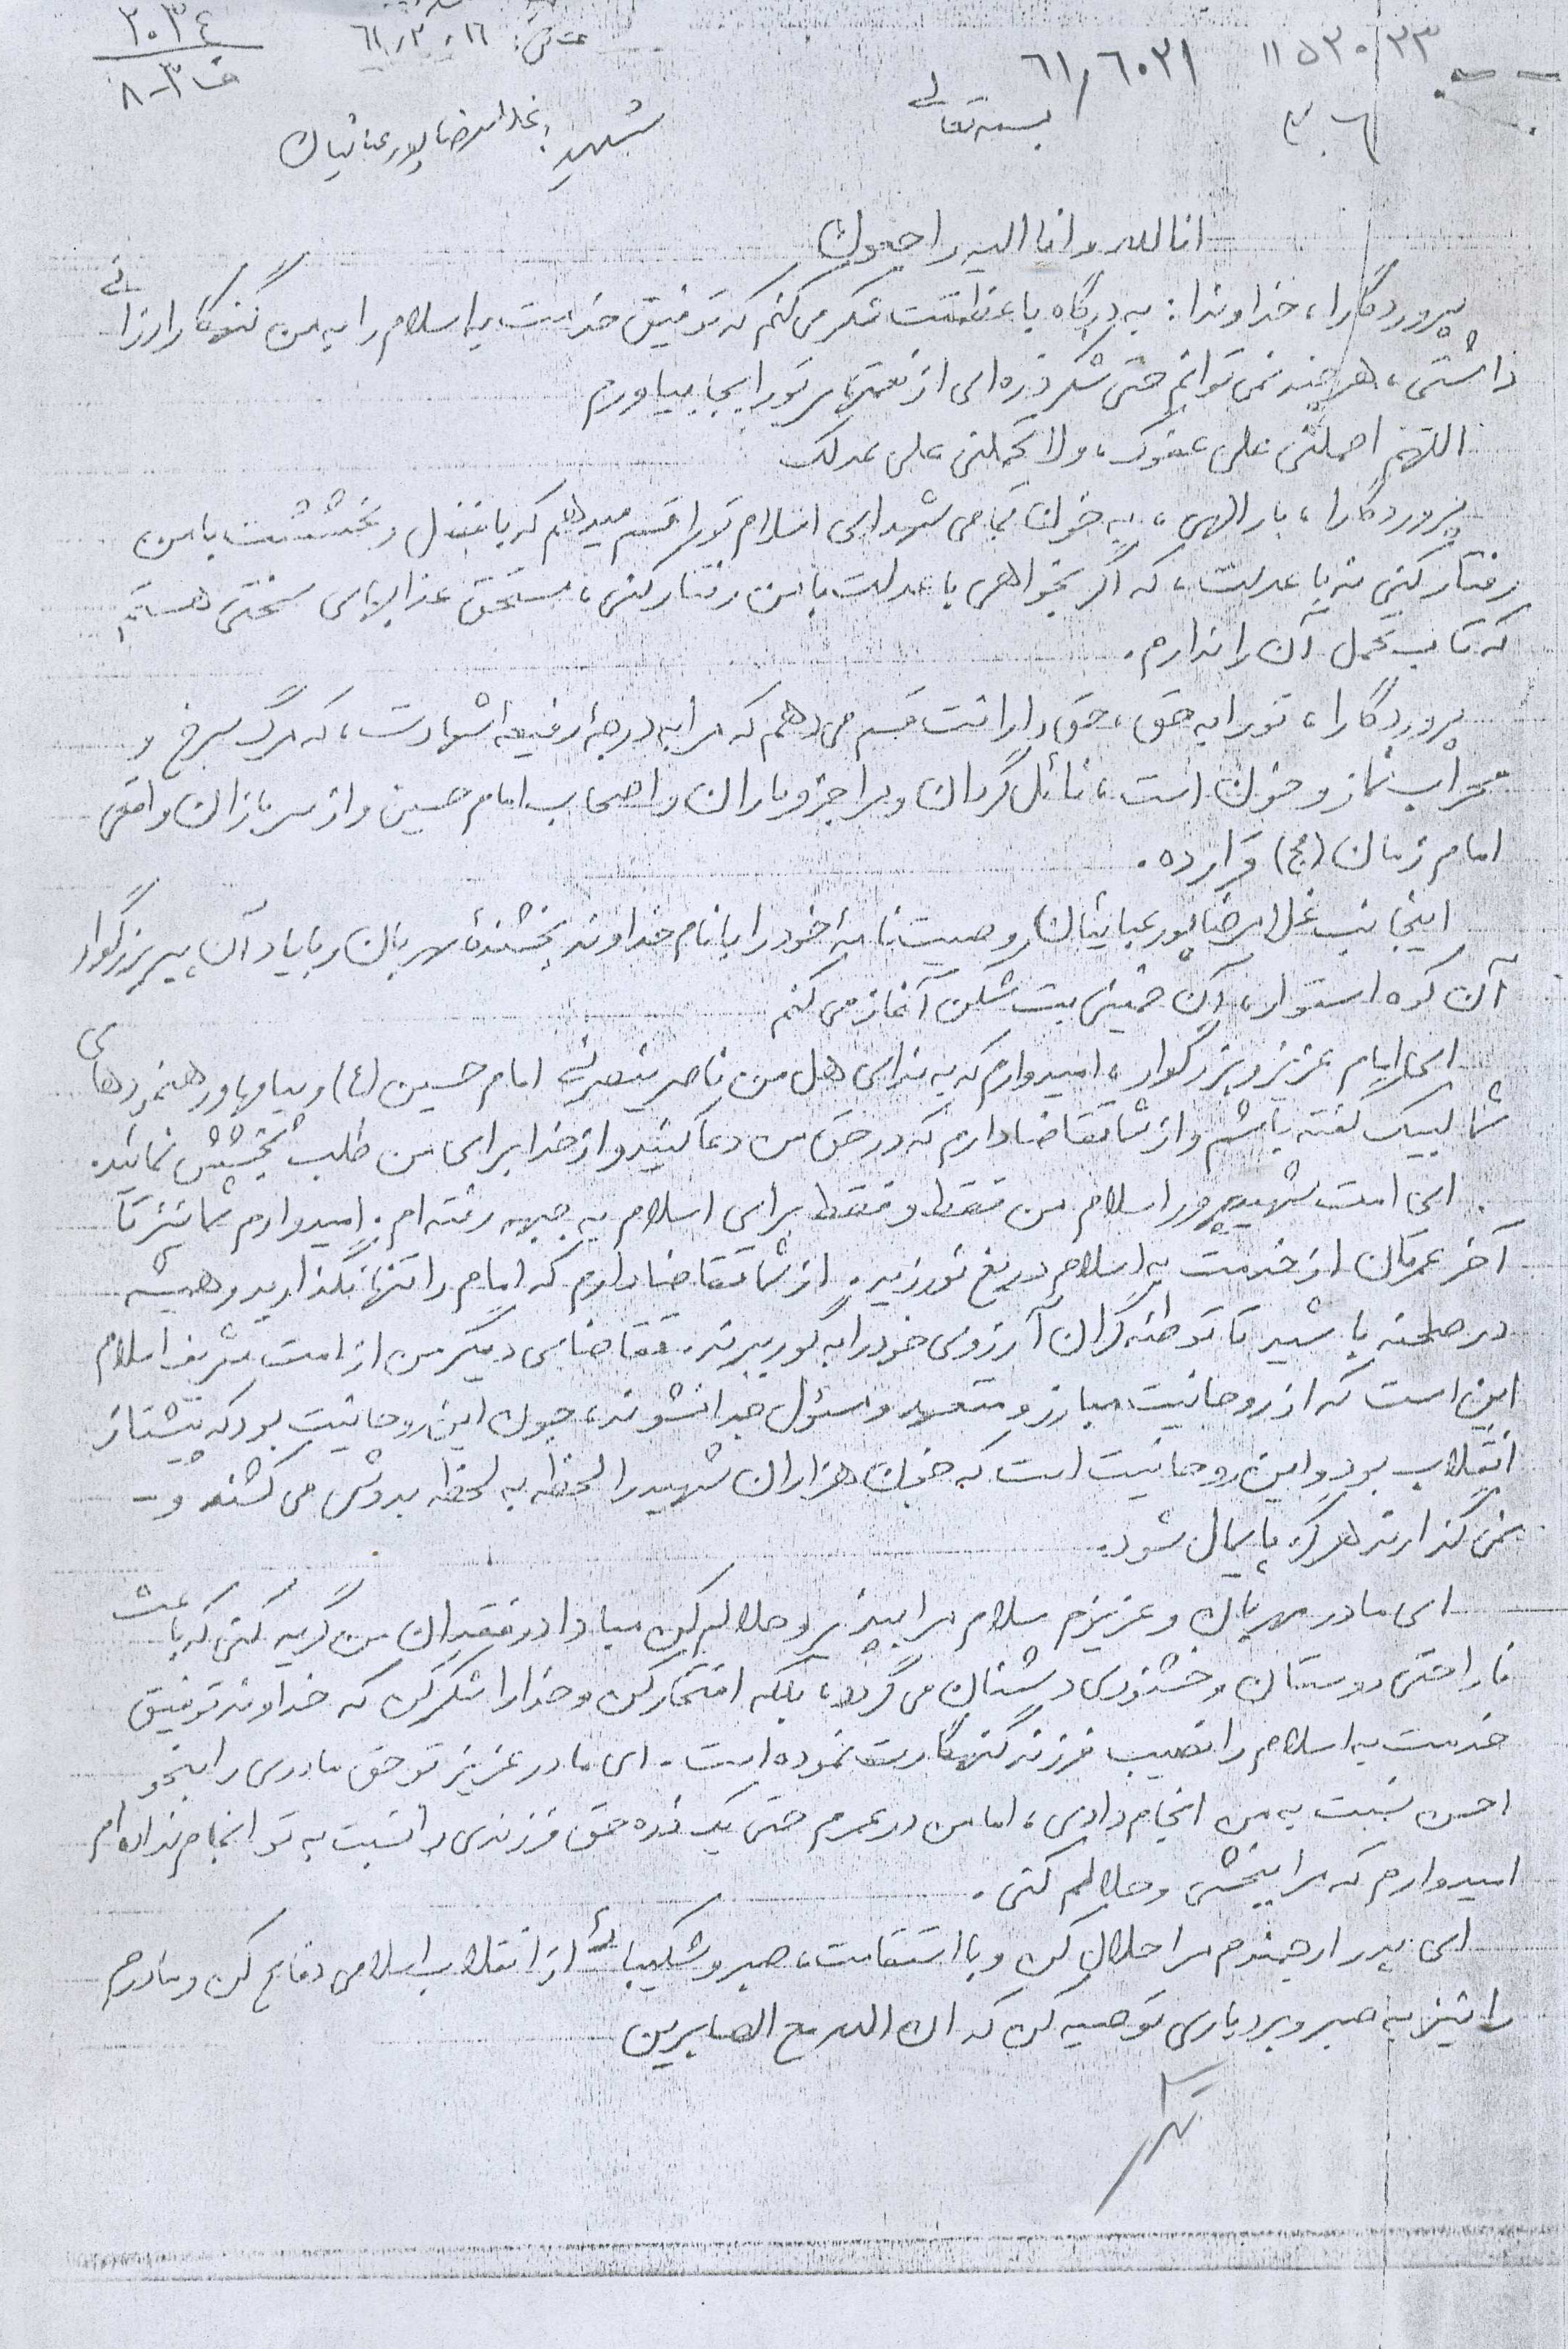 ۲۰۳۴
۸-۳ف
۶۱/۲/۱۶
۶۱/۶۰۳۱
۱۱۵۳۰/۳۳
بسمه تعالی
شهید: غلامرضا پور عباثیان
انا لله و انا الیه راجعون
پروردگارا، خداوندا: به درگاه با عظمتت شکر می کنم که توفیق خدمت به اسلام را به من گنهکار ارزانی
داشتی، هر چند نمی توانم حتی شکر ذره ای از نعمتهای تو را بجا بیاورم
اللهم احملنی علی عفوک، ولا تحملنی علی عدلک
پروردگارا، بار الهی، به خون تمامی شهدای اسلام تو را قسم میدهم که با فضل و بخششت با من
رفتار کنی نه با عدلت، که اگر بخواهی با عدلت با من رفتار کنی، مستحق عذابهای سختی هستم
که تاب تحمل آن را ندارم.
پروردگارا، تو را به حق، حق دارانت قسم می دهم که مرا به درجهٔ رفیعهٔ شهادت، که مرگ سرخ و
محراب نماز و خون است، نائل گردان و مرا جزو یاران و اصحاب امام حسین و از سربازان واقعی
امام زمان (عج) قرار ده.
اینجانب غلامرضا پور عباثیان وصیت نامهٔ خود را با نام خداوند بخشندهٔ مهربان و با یاد آن پیر بزرگوار
آن کوه استوار، آن خمینی بت شکن آغاز می کنم
ای امام عزیز و بزرگوار، امیدوارم که به ندای هل من ناصر ینصرنی امام حسین (ع) و پیامها و رهنمودهای
شما لبیک گفته باشم و از شما تقاضا دارم که در حق من دعا کنید و از خدا برای من طلب بخشش نمائید.
ای امت شهید پرور اسلام من فقط و فقط برای اسلام به جبهه رفته ام. امیدوارم شما نیز تا
آخر عمرتان از خدمت به اسلام دریغ نورزید. از شما تقاضا دارم که امام را تنها نگذارید و همیشه
در صحنه باشید تا توطئه گران آرزوی خود را به گور ببرند. تقاضای دیگر من از امت شریف اسلام
این است که از روحانیت مبارز و متعهد و مسئول جدا نشوند، چون این روحانیت بود که پیشتاز
انقلاب بود و این روحانیت است که خون هزاران شهید را لحظه به لحظه بدوش می کشند و-
نمی گذارند هرگز پایمال شود.
ای مادر مهربان و عزیزم سلام مرا بپذیر و حلالم کن مبادا در فقدان من گریه کنی که باعث
ناراحتی دوستان و خشنودی دشمنان می گردد، بلکه افتخار کن و خدا را شکر کن که خداوند توفیق
خدمت به اسلام را نصیب فرزند گنهکارت نموده است. ای مادر عزیز تو حق مادری را بنحو
احسن نسبت به من انجام دادی، اما من در عمرم حتی یک ذره حق فرزندی را نسبت به تو انجام نداده ام
امیدوارم که مرا ببخشی و حلالم کنی.
ای پدر ارجمندم مرا حلال کن و با استقامت، صبر و شکیبائی از انقلاب اسلامی دفاع کن و مادرم
را نیز به صبر و بردباری توصیه کن که ان الله مع الصابرین